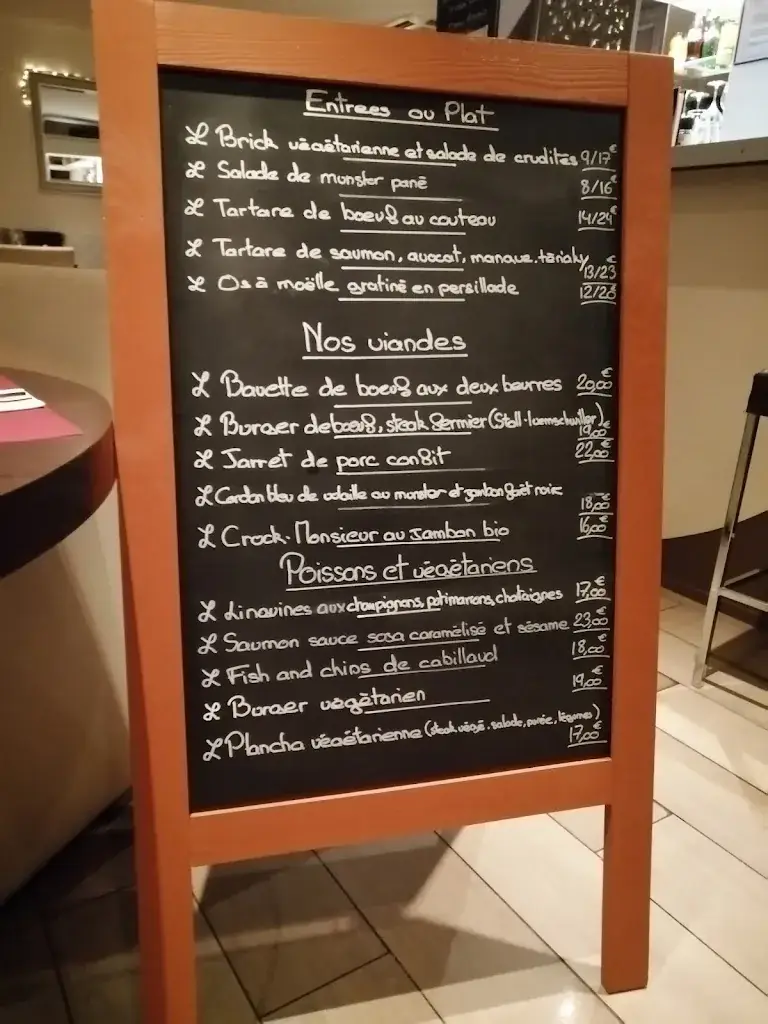 Entrees ou Plat
Brick végétarienne et salade de crudités 9/17€
Salade de munster pané 8/16€
Tartare de boeuf au couteau 14/24€
Tartare de saumon, avocat, mangue, tériaky 13/23€
Os à moëlle gratiné en persillade 12/23
Nos viandes
Bavette de boeuf aux deux beurres 20,00€
Burger de boeuf, steak fermier (Stoll-luemschwiller) 19,00€
Jarret de porc confit 22,00€
Cordon bleu de volaille au munster et jambon forêt noire 18,00€
Crock-Monsieur au Jambon bio 16,00€
Poissons et végétariens
Linguines aux champignons, potimarrons, chataignes 17,00€
Saumon sauce soja caramélisé et sésame 23,00€
Fish and chips de cabillaud 18,00€
Burger végétarien 19,00€
Plancha végétarienne (steak végé, salade, purée, légumes) 17,00€